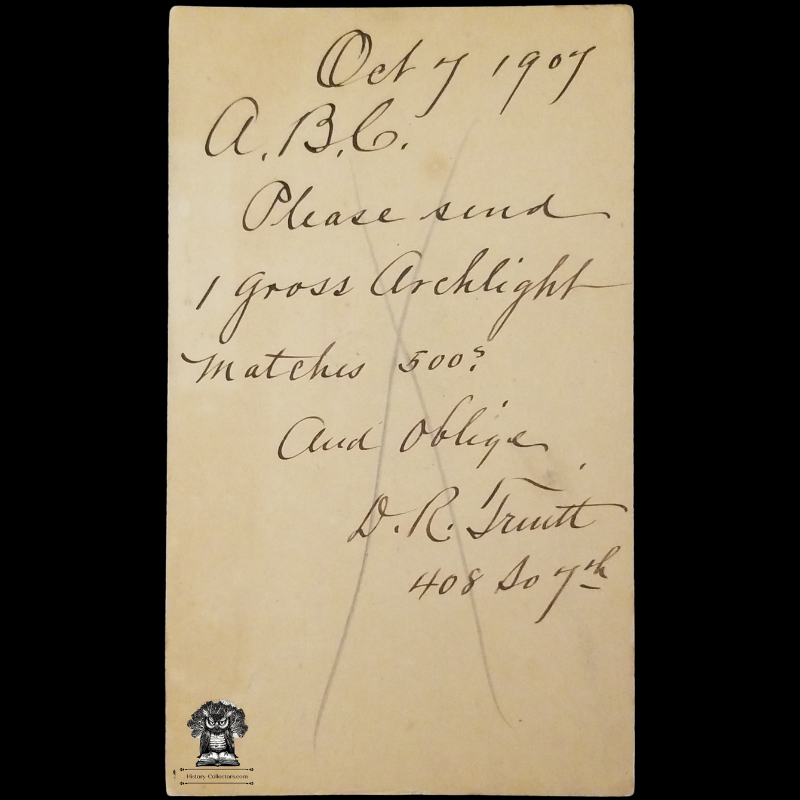 Oct 7 1907
A.B.C.
Please send
1 gross Archlight
Matches 500s.
And Oblige
D. R. Truitt
408 So 7th
History-Collectors.com